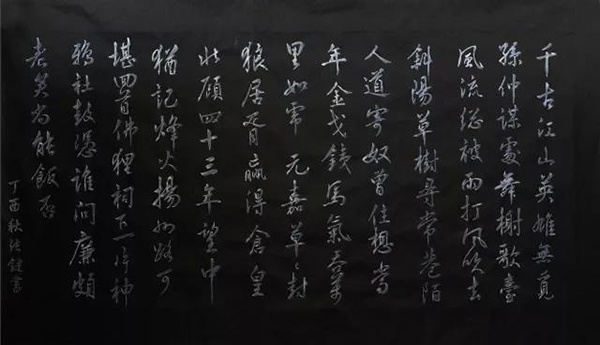 千古江山英雄無覓
孫仲謀處舞榭歌臺
風流總被雨打風吹去
斜陽草樹尋常巷陌
人道寄奴曾住想當
年金戈鐵馬氣吞萬
里如虎 元嘉草〻封
狼居胥贏得倉皇
北顧四十三年望中
猶記烽火揚州路可
堪回首佛狸祠下一片神
鴉社鼓憑誰問廉頗
老矣尚能飯否
丁酉秋張鍵書